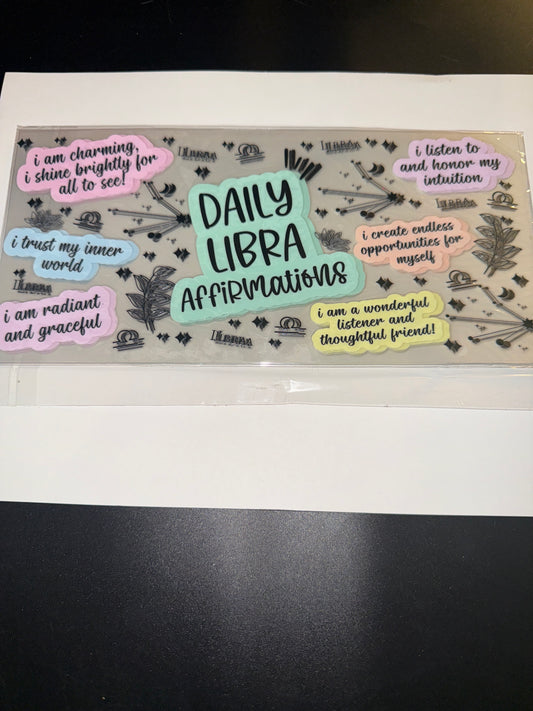 i am charming,
i shine brightly for
all to see!
LIBRA
LIBRA
i listen to
and honor my
intuition
DAILY
LIBRA
AFFIRMATIONS
i trust my inner
world
LIBRA
i create endless
opportunities for
myself
LIBRA
i am radiant
and graceful
LIBRA
i am a wonderful
listener and
thoughtful friend!
LIBRA